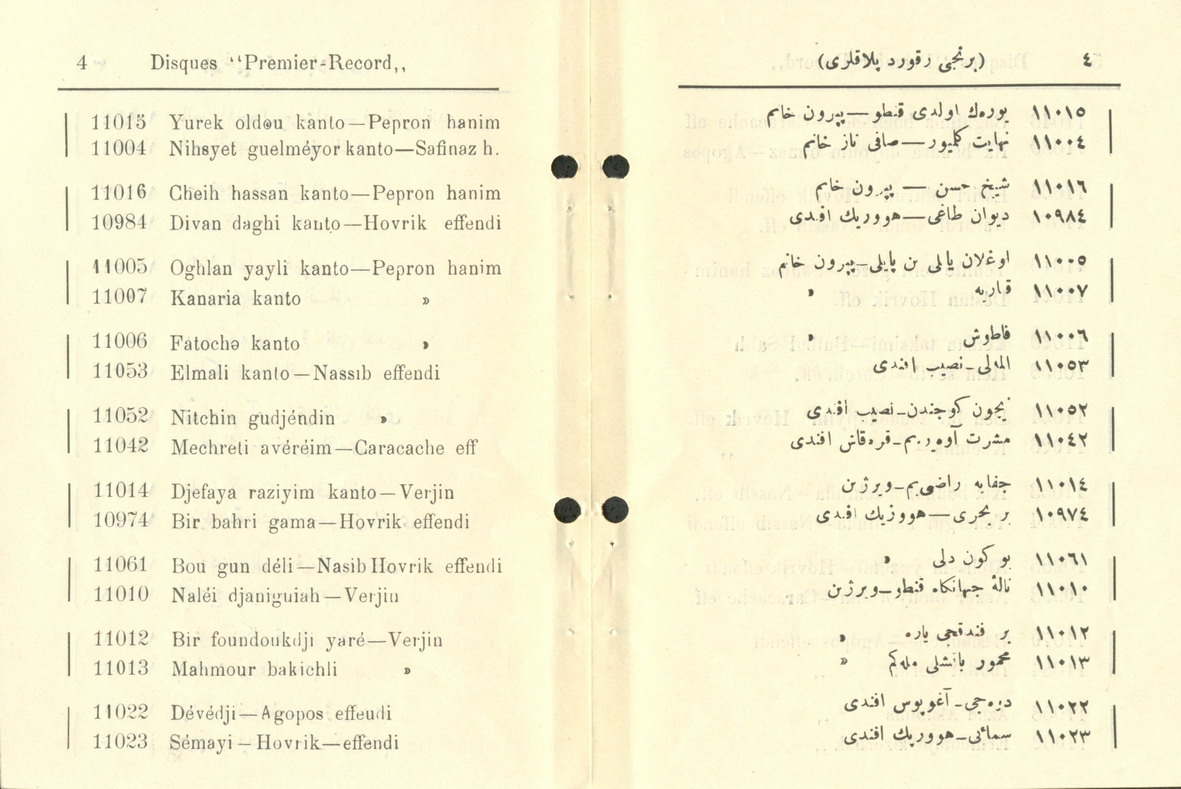 4 Disques ‘‘Premier-Record,,
11015 Yurek oldou kanto—Pepron hanim
11004 Nihayet guelméyor kanto—Safinaz h.
11016 Cheih hassan kanto—Pepron hanim
10984 Divan daghi kanto—Hovrik effendi
11005 Oghlan yayli kanto—Pepron hanim
11007 Kanaria kanto »
11006 Fatoche kanto »
11053 Elmali kanto—Nassib effendi
11052 Nitchin gudjéndin »
11042 Mechreti avéréim—Caracache eff
11014 Djefaya raziyim kanto—Verjin
10974 Bir bahri gama—Hovrik effendi
11061 Bou gun déli—Nasib Hovrik effendi
11010 Naléi djaniguiah—Verjin
11012 Bir foundoukdji yaré—Verjin
11013 Mahmour bakichli »
11022 Dévédji—Agopos effeudi
11023 Sémayi – Hovrik—effendi
(برنجی رقورد پلاقلری) ٤
١١٠١٥ یورهك اولدی قنطو — پپرون خانم
١١٠٠٤ نهایت گلمیور — صافی ناز خانم
١١٠١٦ شیخ حسن — پپرون خانم
١٠٩٨٤ دیوان طاغی — هووریك افندی
١١٠٠٥ اوغلان یایلی بن یایلی ـ پپرون خانم
١١٠٠٧ قناریه »
١١٠٠٦ فاطوش »
١١٠٥٣ المه‌لی ـ نصیب افندی
١١٠٥٢ نیچون كوجندن ـ نصیب افندی
١١٠٤٢ مشرت آوه‌ریم ـ قره‌قاش افندی
١١٠١٤ جفایه راضی‌یم ـ ویرژین
١٠٩٧٤ بر بحری — هووریك افندی
١١٠٦١ بو كون دلی »
١١٠١٠ نالۀ جهانكاه قنطو ـ ویرژین
١١٠١٢ بر فندقجی یاره »
١١٠١٣ مخمور باقشلی »
١١٠٢٢ دوه‌جی ـ آغوپوس افندی
١١٠٢٣ سمائی ـ هووریك افندی